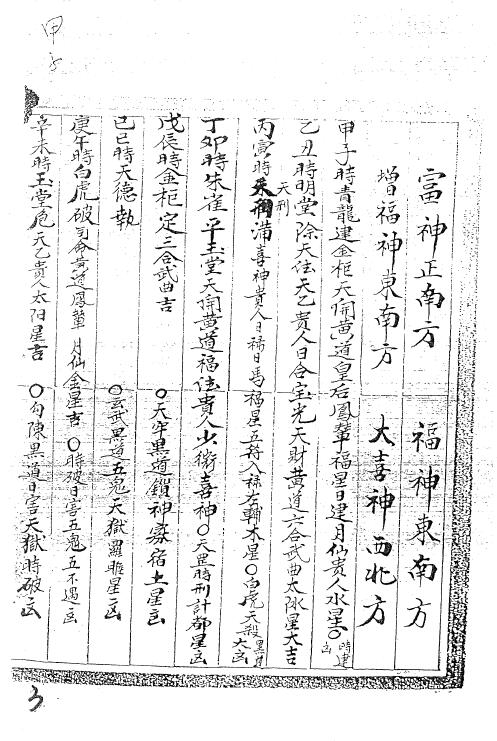 甲子
富神正南方 福神東南方
增福神東南方 大喜神西北方
甲子時青龍建金柜天開黄道皇后鳳輦福星日建月仙貴人水星〇時建凶
乙丑時明堂除天德天乙貴人日合宝光天財黄道六合武曲太陰星大吉
丙寅時天刑満喜神貴人日祿日馬福星五符入祿左輔木星〇白虎天殺黒道大凶
天刑
丁卯時朱雀平玉堂天開黄道福德貴人少微喜神〇天歪時刑計都星凶
戊辰時金柜定三合武曲吉 〇天牢黒道鎖神寡宿土星凶
己巳時天德執 〇玄武黒道五鬼天獄羅睺星凶
庚午時白虎破司命黄道鳳輦月仙金星吉 〇時破日害五鬼五不遇凶
辛未時玉堂危天乙貴人太阳星吉 〇勾陳黒道日害天獄時破凶
3